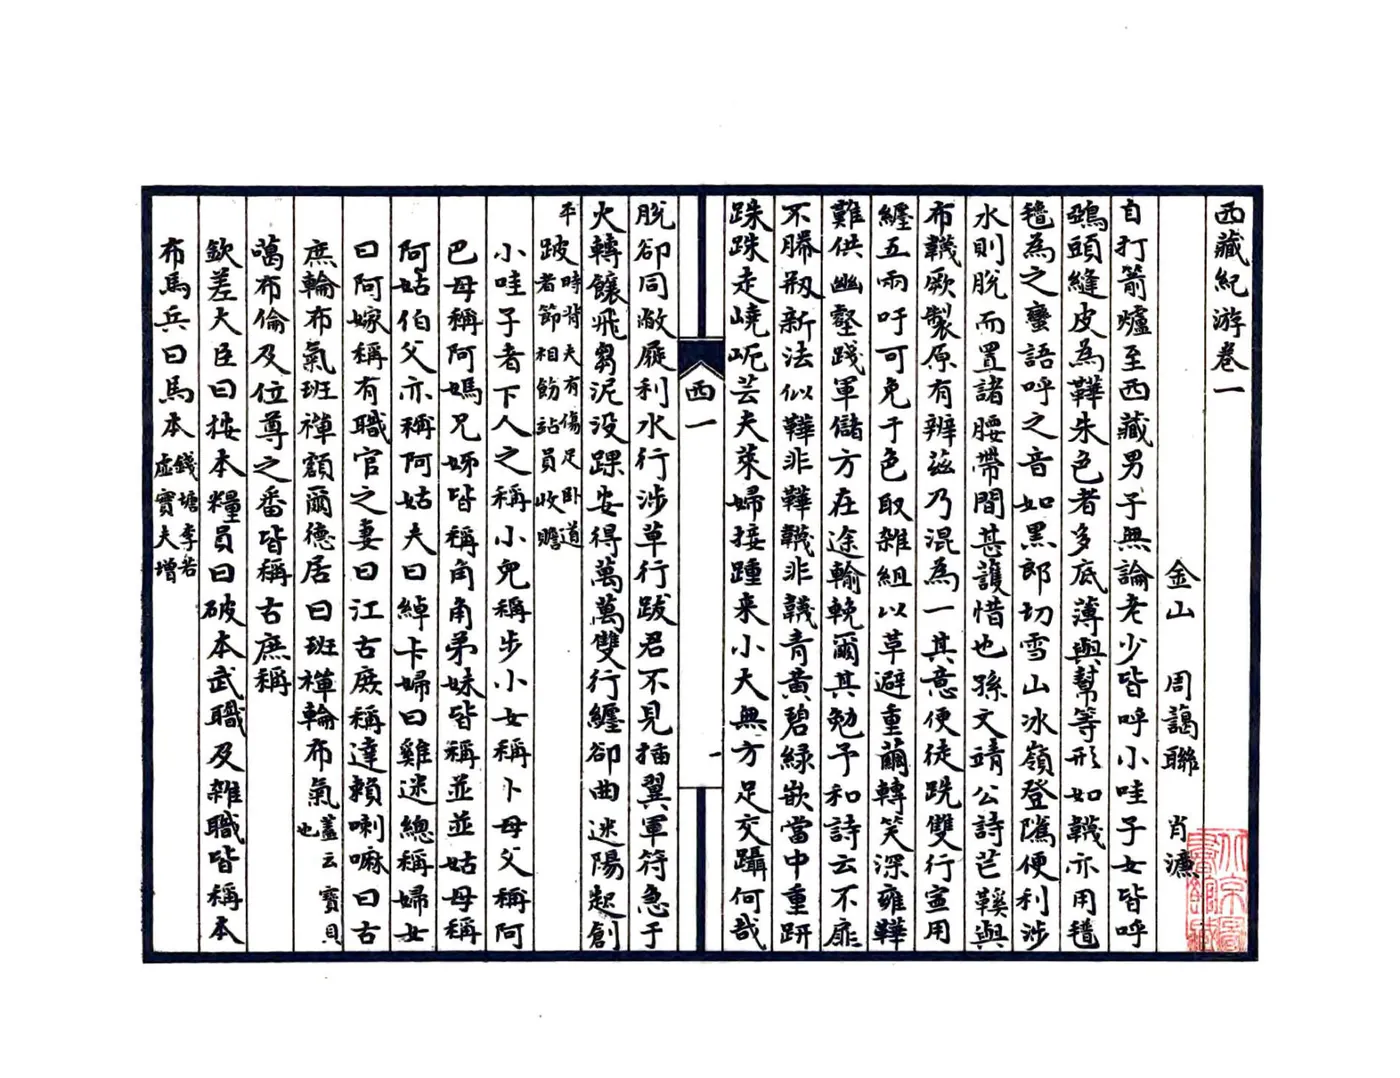 西藏紀游卷一
金山 周藹聯 肖濂
自打箭爐至西藏男子無論老少皆呼小哇子女皆呼
鵶頭縫皮為鞾朱色者多底薄與幫等形如韈亦用氆
氇為之蠻語呼之音如黑郎切雪山冰嶺登隲便利涉
水則脫而置諸腰帶間甚護惜也孫文靖公詩芒鞵與
布韈厥製原有辨茲乃混為一其意便徒跣雙行宣用
纏五兩吁可免于色取雜組以草避重繭轉笑深雍鞾
難供幽壑踐軍儲方在途輸輓爾其勉予和詩云不扉
不屩剏新法似鞾非鞾韈非韈青黃碧綠嵌當中重趼
跦跦走嶢岏芸夫萊婦接踵來小大無方足交躡何哉
西一
一
脫卻同敝屣利水行涉草行跋君不見插翼軍符急于
火轉饟飛芻泥沒踝安得萬萬雙行纏卻曲迷陽起創
平跛時背夫有傷足卧道
者節相飭站員收贍
小哇子者下人之稱小兒稱步小女稱卜母父稱阿
巴母稱阿媽兄姊皆稱角角弟妹皆稱並並姑母稱
阿姑伯父亦稱阿姑夫曰綽卡婦曰雞迷總稱婦女
曰阿嫁稱有職官之妻曰江古廒稱達賴喇嘛曰古
庶輪布氣班禪額爾德居曰班禪輪布氣蓋云寶貝
也
噶布倫及位尊之番皆稱古庶稱
欽差大臣曰桉本糧員曰破本武職及雜職皆稱本
布馬兵曰馬本錢塘李若
虛實夫增